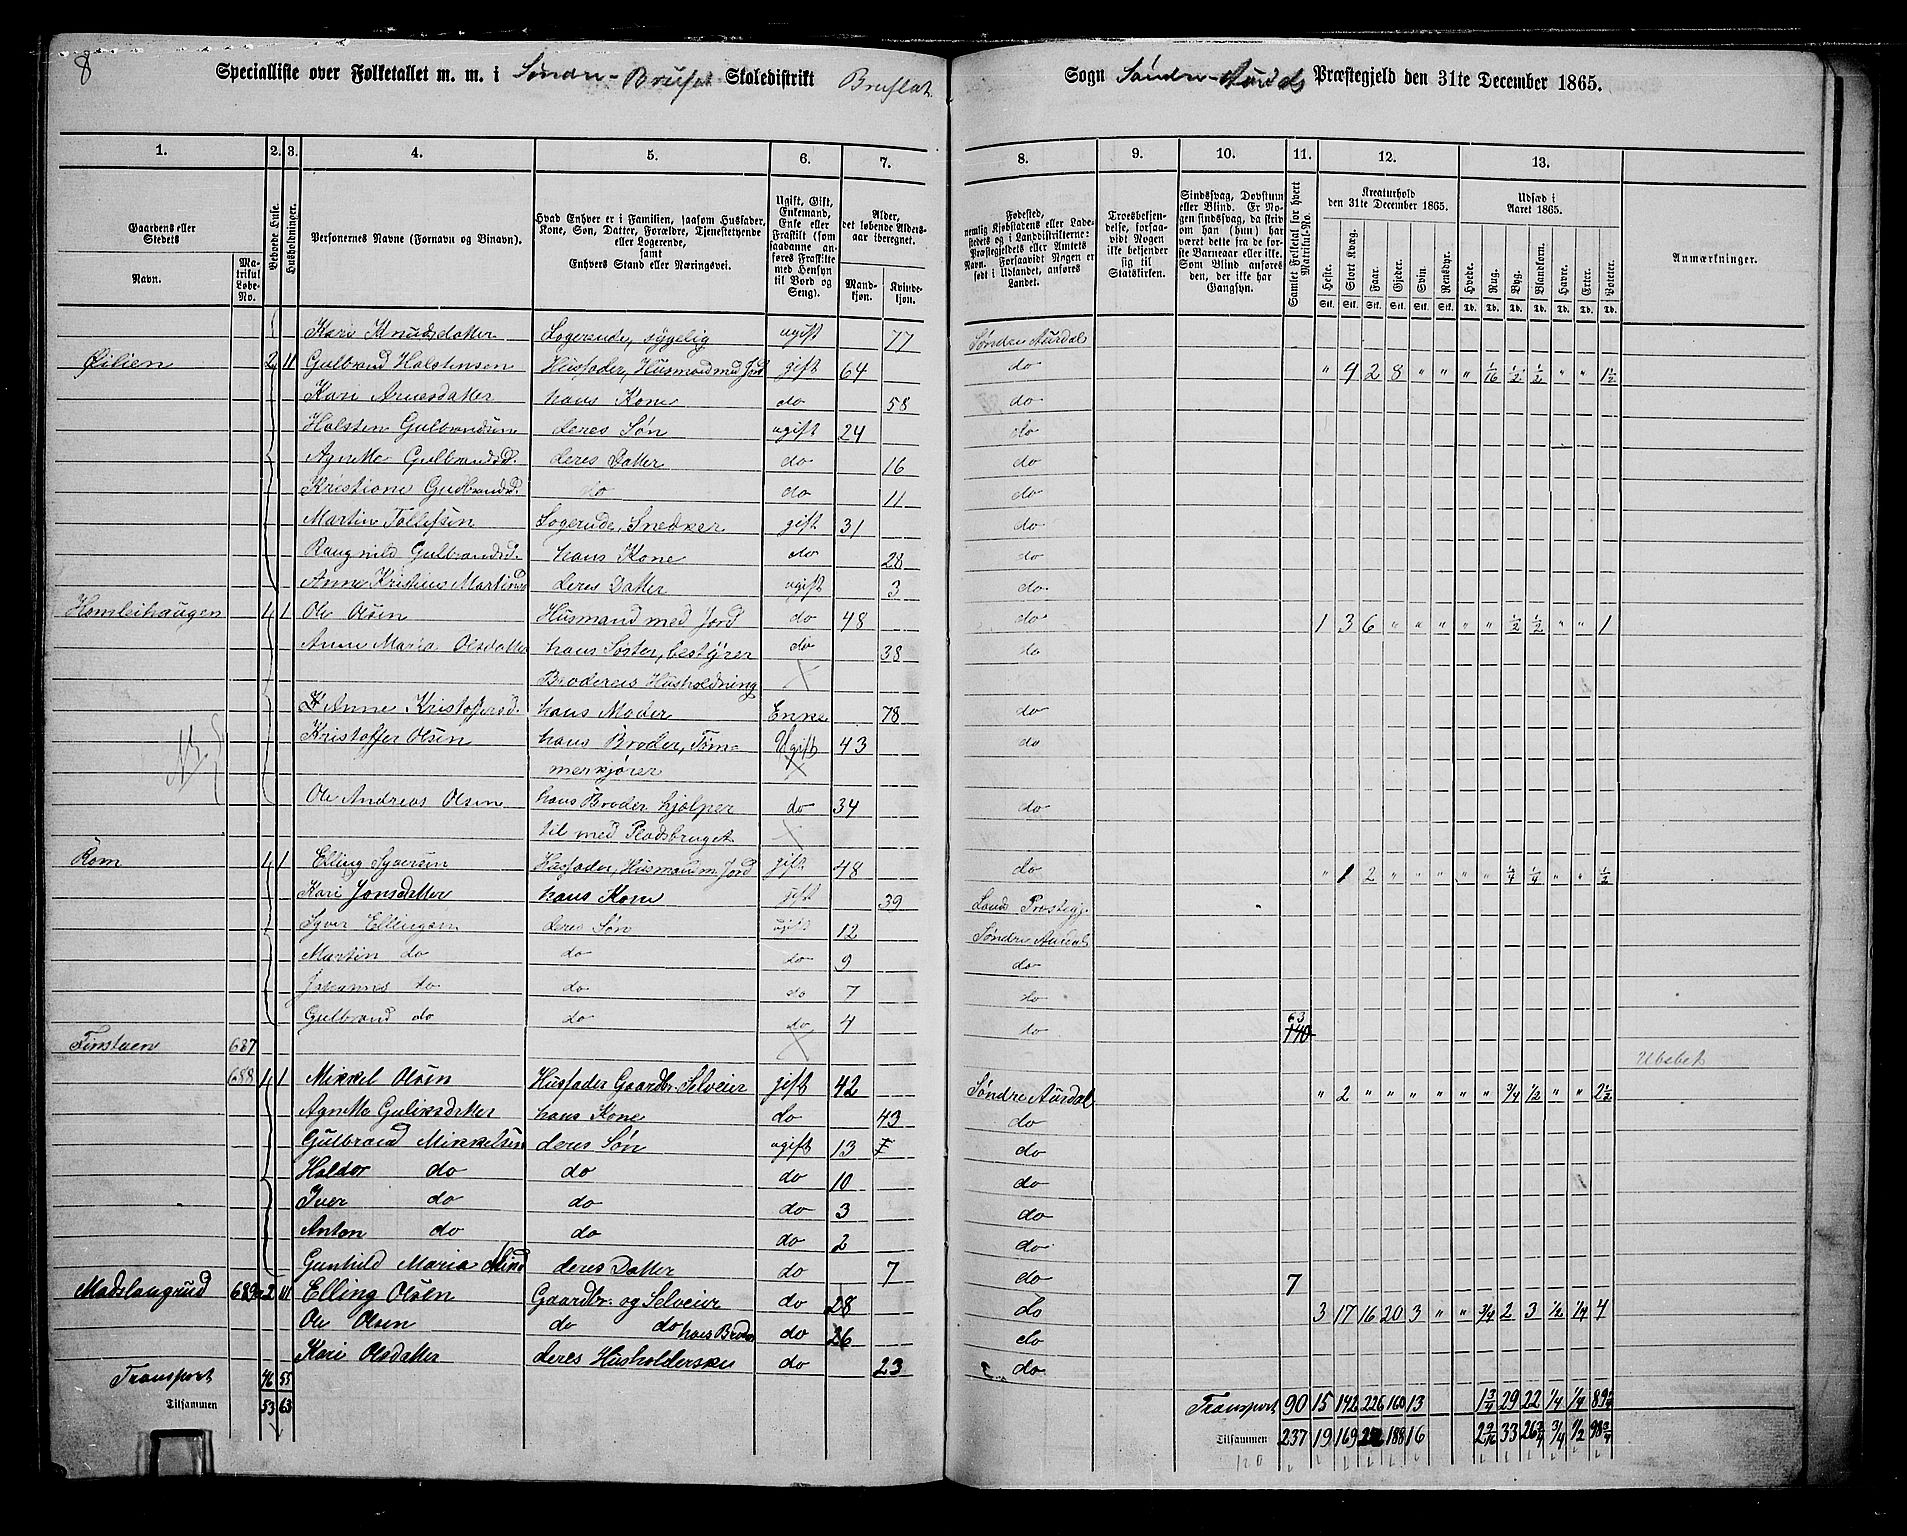 8
Specialliste over Folketallet m. m. i Søndre-Bruflat Skoledistrikt Bruflat Sogn Søndre-Aurdals Præstegjeld den 31te December 1865.
1. 2. 3. 4. 5. 6. 7. 8. 9. 10. 11. 12. 13.
Gaardens eller Stedets
Navn.
Matrikul Løbe-No.
Beboede Huse.
Husholdninger.
Personernes Navne (Fornavn og Binavn).
Hvad Enhver er i Familien, saasom Husfader, Kone, Søn, Datter, Forældre, Tjenestetyende eller Logerende, samt Enhvers Stand eller Næringsvei.
Ugift, Gift, Enkemand, Enke eller Fraskilt (som saadanne anføres Fraskilte med Hensyn til Bord og Seng).
Alder, det løbende Aldersaar iberegnet.
Mandkjøn. Kvindekjøn.
Fødested, nemlig Kjøbstadens eller Ladestedets og i Landdistrikterne: Præstegjeldets eller Amtets Navn. Forsaavidt Nogen er født i Udlandet, anføres Landet.
Troesbekjendelse, forsaavidt Nogen ikke bekjender sig til Statskirken.
Sindssvag, Døvstum eller Blind. Er Nogen sindssvag, da skriv om han (hun) har været dette fra de første Barneaar eller ikke. Som Blind anføres den, der ikke har Gangsyn.
Samlet Folketal for hvert Matrikul-No.
Kreaturhold den 31te December 1865.
Heste. Stort Kvæg. Faar. Gjeder. Svin. Rensdyr.
Udsæd i Aaret 1865.
Hvede. Rug. Byg. Blandkorn. Havre. Erter. Poteter.
Anmærkninger.
Kari Knudsdatter Logerende, sygelig ugift 77 Søndre Aurdal
Øilien 2 11 Gulbrand Halstensen Husfader, Husmand med Jord gift 64 do " 4 2 8 " " " 1/16 1/2 1/2 " " 1 1/2
Kari Arnesdatter hans Kone do 58 do
Halsten Gulbrandsen deres Søn ugift 24 do
Agnette Gulbrandsd. deres Datter do 16 do
Kristiane Gudbrandsd. do do 11 do
Martin Tollefsen Logerende, Snedker gift 31 do
Rangnild Gulbrandsd. hans Kone do 28 do
Anne Kristine Martinsd deres Datter ugift 3 do
Homleihaugen 1 1 Ole Olsen Husmand med Jord do 48 do 1 3 6 " " " " " 1/2 1/2 " " 1
Anne Maria Olsdatter hans Søster, bestyrer do 38 do
Broderens Husholdning
Anne Kristoffersd. hans Moder Enke 78 do
Kristoffer Olsen hans Broder, Tøm- Ugift 43 do
merkjører
Ole Andreas Olsen hans Broder hjælper do 34 do
til med Pladsbruget
Rom 1 1 Elling Syversen Husfader, Husmand m. Jord gift 48 do " 1 2 " " " " " 1/4 1/4 " " 1/2
Kari Jonsdatter hans Kone gift 39 Land Præstegj.
Syver Ellingsen deres Søn ugift 12 Søndre Aurdal
Martin do do do 9 do
Johannes do do do 7 do
Gulbrand do do do 4 do 63 140
Tinstuen 687
Ubebot
688 1 1 Mikkel Olsen Husfader Gaardbr. Selveier gift 42 Søndre Aurdal " 2 " " " " " " 3/4 1/2 " " 2 1/2
Agnette Guliksdatter hans Kone do 43 do
Gulbrand Mikkelsen deres Søn ugift 13 do
Haldor do do do 10 do
Iver do do do 3 do
Anton do do do 2 do
Gunhild Maria deres Datter do 7 do 7
Madslangrud 689 2 111 Elling Olsen Gaardbr. og Selveier do 28 do 3 17 16 20 3 " " 3/4 2 3 1/2 1/4 4
Ole Olsen do do hans Broder do 26 do
Kari Olsdatter deres Husholderske do 23 do
Transport 46 55 Transport 90 15 142 226 160 13 1 3/4 29 22 1/4 1/4 89 1/4
Tilsammen 53 63 Tilsammen 237 19 169 188 16 2 9/16 33 26 3/4 3/4 1/2 98 3/4